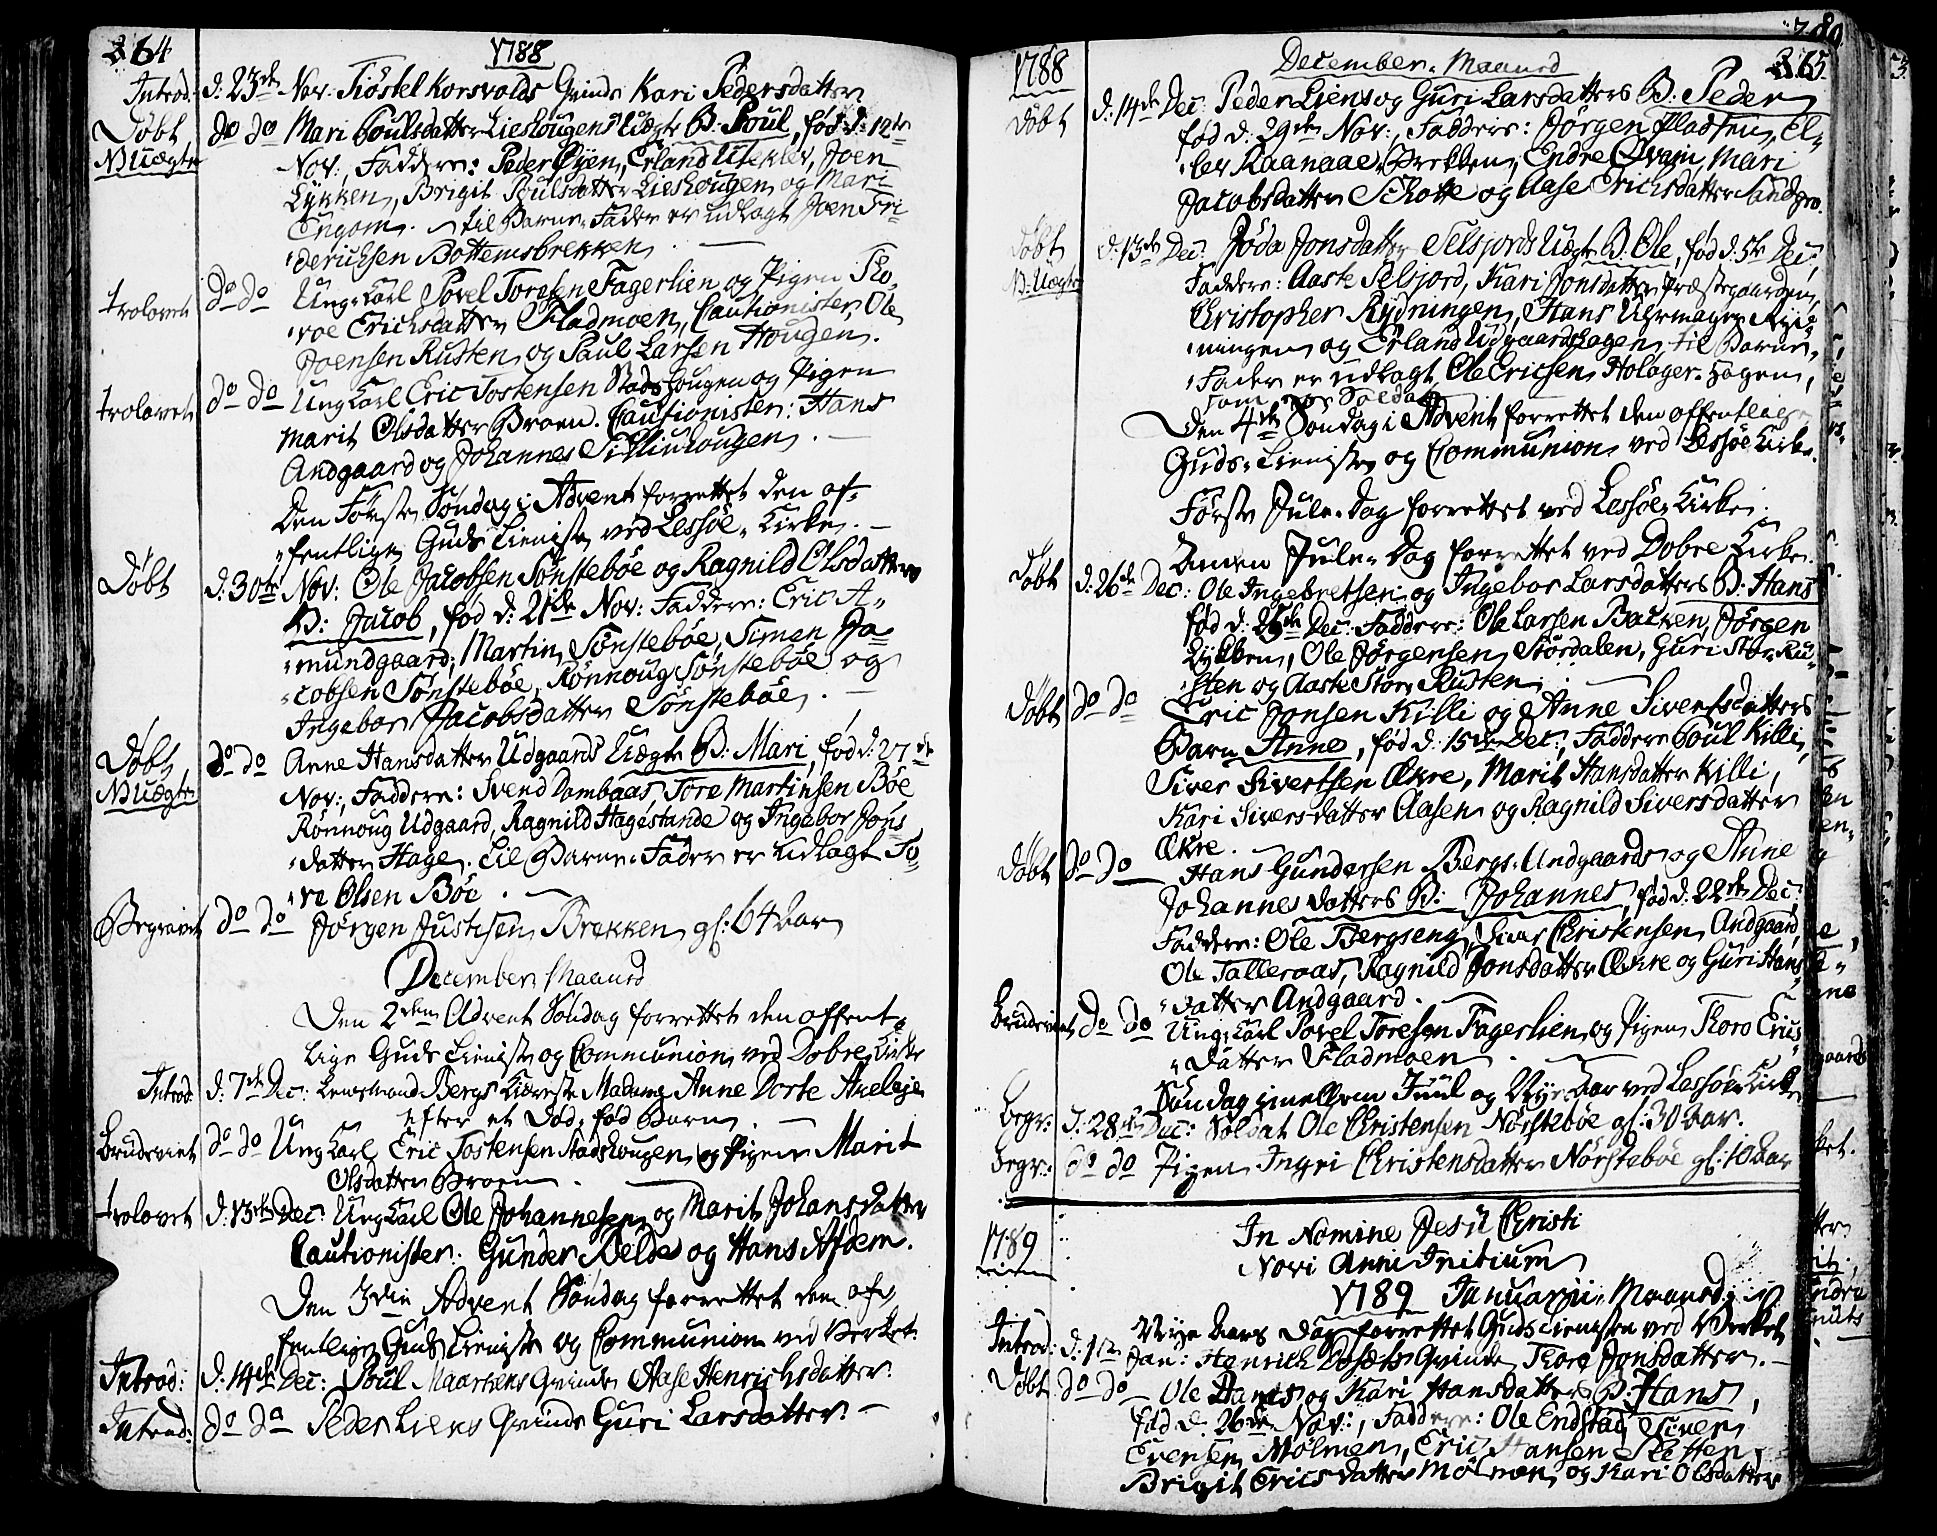 264
1788
Introd: d: 23de Nov: Tiöstel Korsvolds Qvinde Kari Pedersdatter
Döbt do do Mari Poulsdatter Lieshougens Uægte B: Poul, fød d: 12te
N: Uægte Nov:, Faddere: Peder Öyen, Erland Uleklev, Joen
Lykken, Brigit Poulsdatter Lieshougen og Mari
Engom. til Barne-Fader er udlagt Joen Fri-
derichsen Bottemsbrekken.
trolovet do do Ung-Karl Povel Toresen Fagerlien og Pigen Tho-
roe Erichsdatter Fladmoen, Cautionister, Ole
Joensen Rusten og Paul Larsen Hougen.
trolovet do do Ung Karl Eric Tostensen Stadshougen og Pigen
Marit Olsdatter Broen. Cautionister: Hans
Andgaard og Johannes Sillinhougen.
Den Förste Söndag i Advent forrettet den of-
fentlige Guds Tieniste ved Lessöe-Kirke.
Döbt d: 30te Nov: Ole Jacobsen Sönsteböe og Ragnild Olsdatters
B: Jacob, fød d: 21de Nov: Faddere: Eric A-
mundgaard, Martin Sönsteböe, Simen Ja-
cobsen Sönsteböe, Rönnoug Sönsteböe og
Ingebor Jacobsdatter Sönsteböe.
Döbt do do Anne Hansdatter Udgaards Uægte B: Mari, fød d: 27de
N: Uægte Nov:, Faddere: Svend Dombaas, Tore Martinsen Böe
Rönnoug Udgaard, Ragnild Hagestande og Ingebor Jons-
datter Hage. til Barne-Fader er udlagt To-
re Olsen Böe.
Begravet do do Jörgen Justisen Brekken gl: 64 Aar
December Maaned
Den 2den Advent Söndag forrettet den offent-
lige Guds Tieniste og Communion ved Dobre Kirke
Introd: d: 7de Dec: Lensmand Bergs Kiæreste Madame Anne Dorte Axelsje
efter et död-fød Barn.
Brudeviet do do Ung Karl Eric Tostensen Stadshougen og Pigen Marit
Olsdatter Broen.
trolovet d: 13de Dec: Ung Karl Ole Johannesen og Marit Johansdatter
Cautionister: Gunder Kelde og Hans Afdem.
Den 3die Advent Söndag forrettet den of-
fentlige Guds Tieniste og Communion ved Verket.
Introd: d: 14de Dec: Poul Maartens Qvinde Aase Henrichsdatter.
Introd: do do Peder Liens Qvinde Guri Larsdatter.
1788
December-Maaned
265
Döbt d: 14de Dec: Peder Liens og Guri Larsdatters B: Peder
fød d: 29de Nov:, Faddere: Jörgen Pladsen, El-
lev Raanaae, Brekken, Endre Qvam, Mari
Jacobsdatter Schotte og Aase Erichsdatter Sandgro.
Döbt d: 13de Dec: Jöda Jonsdatter Selsjords Uægte B: Ole, fød d: 5te Dec:
N: Uægte Faddere: Aaste Selsjord, Kari Jonsdatter Præstegaarden,
Christopher Rydningen, Hans Uhrmager Ryd-
ningen og Erland Udgaardshagen til Barne-
Fader er udlagt Ole Ericsen Holager-Hagen,
som var Soldat
Den 4de Söndag i Advent forrettet den offentlige
Guds-Tieniste og Communion ved Lessöe Kirke.
Förste Jule-Dag forrettet ved Lessöe Kirke.
Anden Jule-Dag forrettet ved Dobre Kirke.
Döbt d: 26de Dec: Ole Ingebretsen og Ingebor Larsdatters B: Hans
fød d: 25de Dec: Faddere: Ole Larsen Backen, Jörgen
Lykken, Ole Jörgensen Stordalen, Guri Stor Ru-
sten og Aaste Stor Rusten.
Döbt do do Eric Jonsen Killi og Anne Sivertsdatters
Barn Anne, fød d: 15de Dec:, Faddere Poul Killi,
Siver Sivertsen Ækre, Marit Hansdatter Killi,
Kari Siversdatter Aasen og Ragnild Siversdatter
Ækre.
Döbt do do Hans Gundersen Bergs-Undgaards og Anne
Johannesdatters B: Johannes, fød d: 22de Dec:
Faddere: Ole Bergseng, Christensen Andgaard,
Ole Talleraas, Ragnild Jonsdatter Ækre og Guri Hans-
datter Andgaard.
Brudeviet do do Ung-Karl Povel Toresen Fagerlien og Pigen Thoro Erics-
datter Fladmoen.
Söndag imellem Juul og Nyt-Aar ved Lessöe Kirke
Begr: d: 28de Dec: Soldat Ole Christensen Nörsteböe gl: 30 Aar.
begr: do do Pigen Ingri Christensdatter Nörsteböe gl: 10 Aar
1789
In Nomine Jesu Christi
Novi Anni Initium
1789 Januarii-Maaned
Nye Aars Dag forrettet Gudstieniste ved Værket
Introd: d: 1ste Jan: Henrich Qvinde Thore Jonsdatter.
Döbt do do Ole og Kari Hansdatters B: Hans,
fød d: 26de Nov:, Faddere: Ole Endstad, Siver
Evensen Mölmen, Eric Hansen Sletten,
Brigit Ericsdatter Mölmen, og Kari Olsdatter